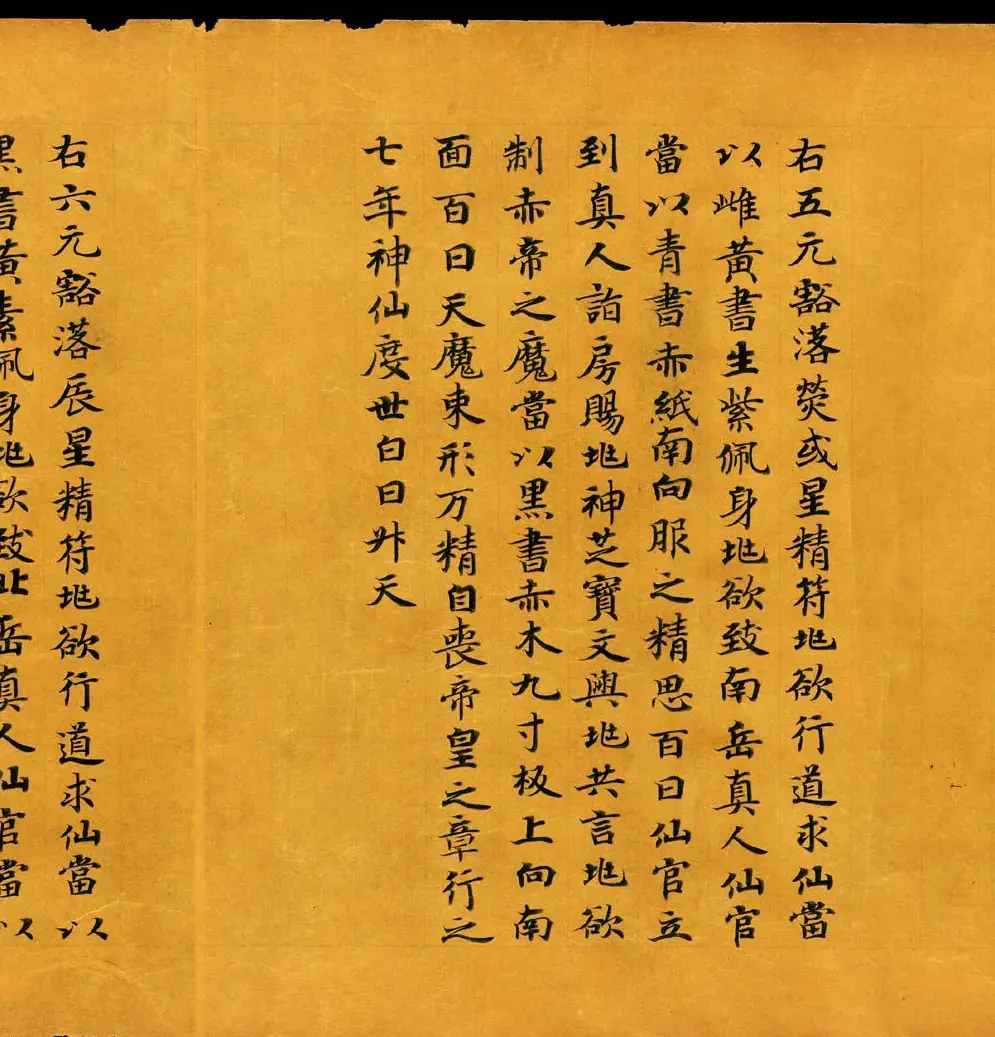 右五元豁落熒或星精符兆欲行道求仙當
以雌黃書生紫佩身兆欲致南岳真人仙官
當以青書赤紙南向服之精思百日仙官立
到真人詣房賜兆神芝寶文與兆共言兆欲
制赤帝之魔當以黑書赤木九寸板上向南
面百日天魔束形万精自喪帝皇之章行之
七年神仙度世白日升天
右六元豁落辰星精符兆欲行道求仙當以
黑書黃素佩身兆欲致北岳真人仙官當以